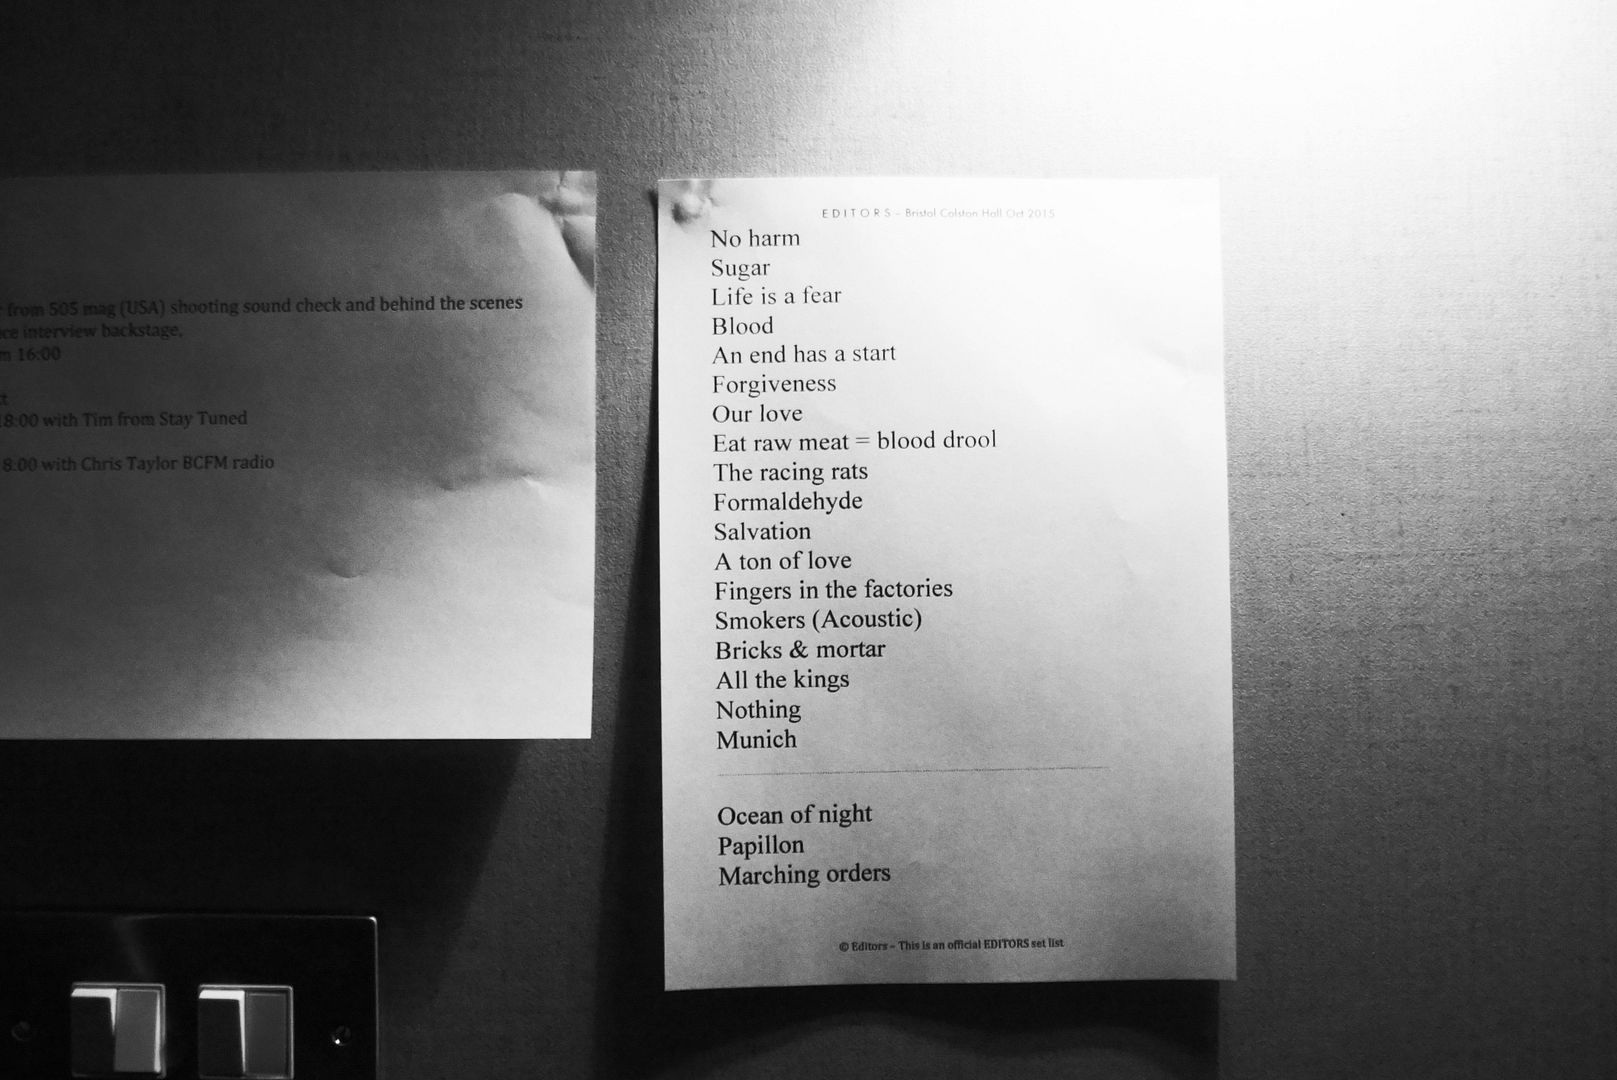 from 505 mag (USA) shooting sound check and behind the scenes
interview backstage,
16:00
8:00 with Tim from Stay Tuned
8:00 with Chris Taylor BCFM radio
EDITORS - Bristol Colston Hall Oct 2015
No harm
Sugar
Life is a fear
Blood
An end has a start
Forgiveness
Our love
Eat raw meat = blood drool
The racing rats
Formaldehyde
Salvation
A ton of love
Fingers in the factories
Smokers (Acoustic)
Bricks & mortar
All the kings
Nothing
Munich
Ocean of night
Papillon
Marching orders
© Editors – This is an official EDITORS set list